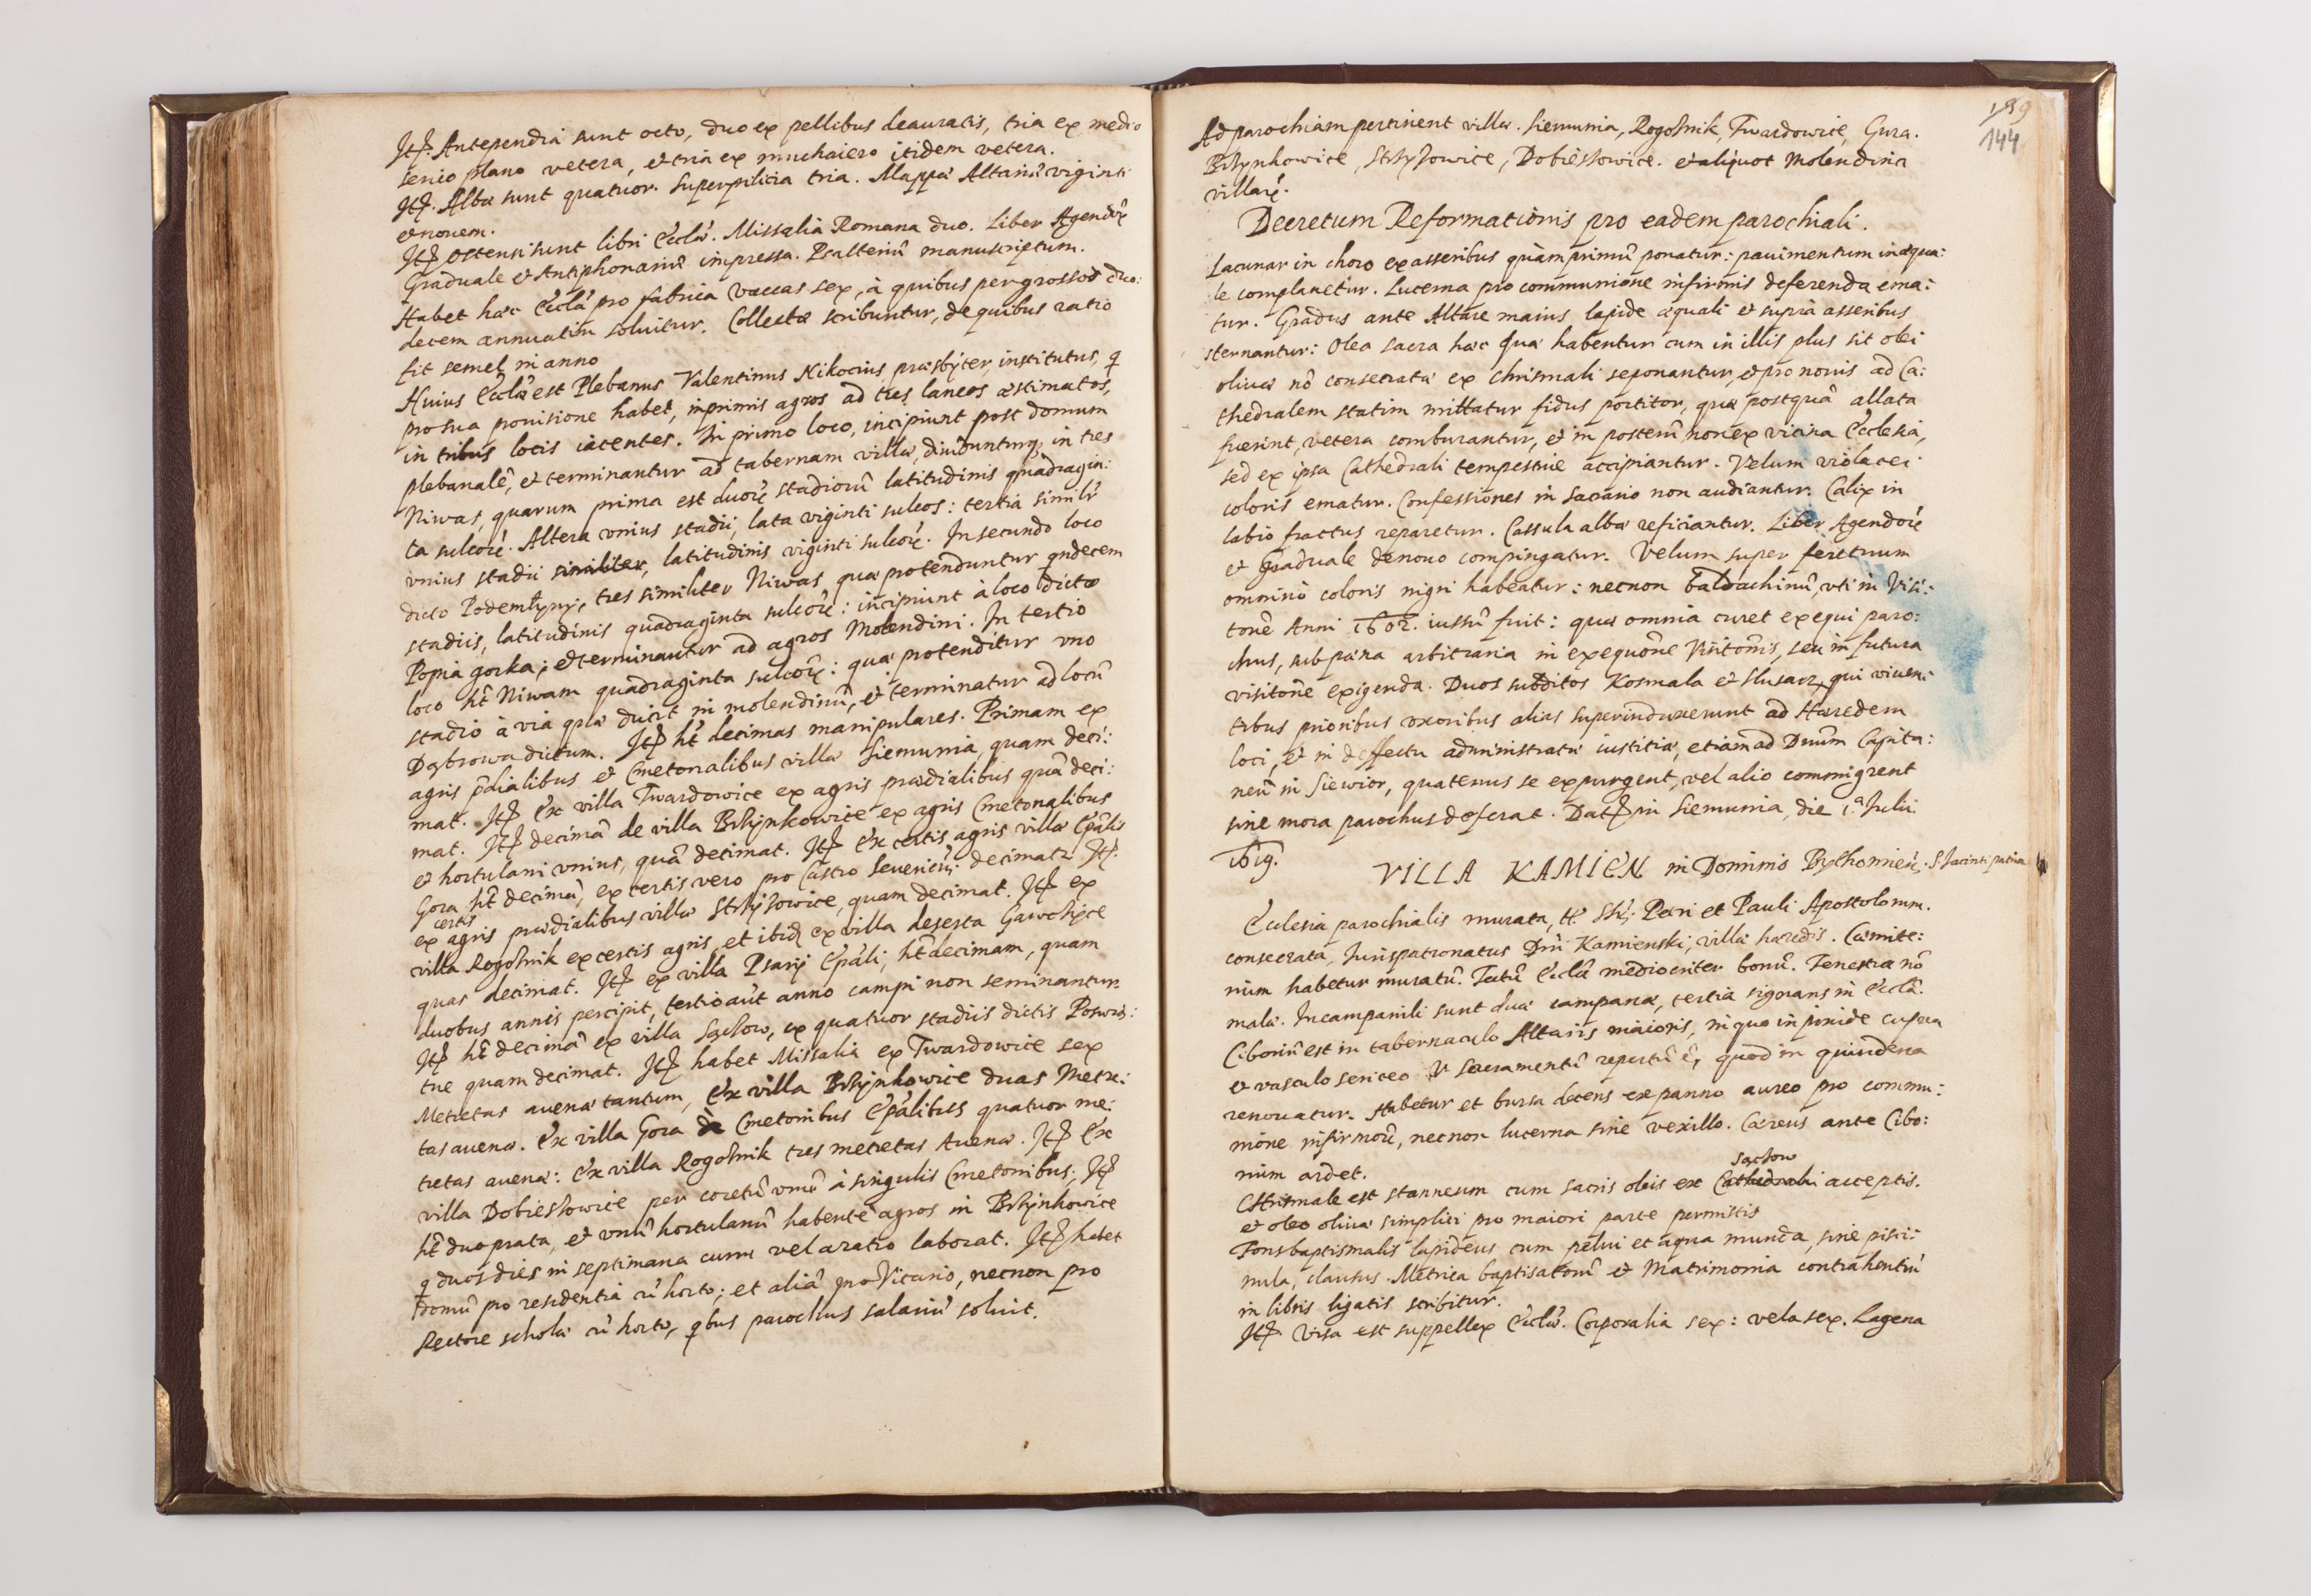 Itẽ. Antependia sunt octo, duo ex pellibus deauratis, tria ex medio
serico plano vetera, et tria ex muchaiero itidem vetera.
Itẽ. Albæ sunt quatuor. Superpilicia tria. Mappæ Altariũ viginti
et novem.
Itẽ ostensi sunt libri Ecclæ. Missalia Romana duo. Liber Agendorũ
Graduale et Antiphonariũ impressa. Psalteriũ manuscriptum.
Habet hæc Ecclã pro fabrica vaccas sex, à quibus per grossos duo:
decem annuatim solvitur. Collectæ scribuntur, de quibus ratio
fit semel in anno
Huius Ecclæ est Plebanus Valentinus Nikocius, præsbÿter, institutus, q̃
pro sua provisione habet, inprimis agros ad tres laneos æstimatos,
in tribus locis iacentes. In primo loco, incipiunt post domum
plebanalẽ, et terminantur ad tabernam villæ, dividunturq̃ in tres
Niwas, quarum prima est duorũ stadiorũ latitudinis quadragin:
ta sulcorũ. Altera unius stadii, lata viginti sulcos: tertia similr̃
unius stadii similiter, latitudinis viginti sulcorũ. In secundo loco
dicto Podemłyny, tres similiter Niwas, quæ protenduntur qndecem
stadiis, latitudinis quadraginta sulcorũ: incipiunt à loco dicto
Popia gorka; et terminantur ad agros Molendini. In tertio
loco hẽt Niwam quadraginta sulcorũ: quæ protenditur uno
stadio à via quæ ducit in molendinũ, et terminatur ad locũ
Dąbrowa dictum. Itẽ hẽt decimas manipulares. Primam ex
agris p̃dialibus et Cmetonalibus villæ Siemunia, quam deci:
mat. Itẽ Ex villa Twardowice ex agris prædialibus quã deci:
mat. Itẽ decimã de villa Brhÿnkowice ex agris Cmetonalibus
et hortulani unius, quã decimat. Itẽ Ex certis agris villæ Ep̃alis
Gora hẽt decimã, ex certis vero pro Castro Severien̄: decimatr̃ Itẽ.
certis
ex agris prædialibus villæ Strhÿzowice, quam decimat. Itẽ ex
villa Rogoznik ex certis agris, et ibidẽ ex villa deserta Gawchÿce
quas decimat. Itẽ ex villa Psarÿ Ep̃ali, hẽt decimam, quam
duobus annis percipit, tertio aũt anno campi non seminantur.
Itẽ hẽt decimã ex villa Sączow, ex quatuor stadiis dictis Poswię:
tne quam decimat. Itẽ habet Missalia ex Twardowice sex
Metretas avenæ tantum, Ex villa Brhÿnkowice duas Metre:
tas avenæ. Ex villa Gora de Cmetonibus Ep̃alibus quatuor me:
tretas avenæ: Ex villa Rogoznik tres metretas Avenæ. Itẽ Ex
villa Dobieszowice per coretũ unũ à singulis Cmetonibus; Itẽ
hẽt duo prata, et unũ hortulanũ habentẽ agros in Brhÿnkowice
q̃ duos dies in septimana curru vel aratro laborat. Itẽ habet
domũ pro residentia cũ horto; et aliã pro Vicario, necnon pro
Rectore scholæ cũ horto, q̃bus parochus salariũ solvit.
189
144
Ad parochiam pertinent villæ. Siemunia, Rogoznik, Twardowice, Gura.
Brhÿnkowice, Strhÿzowice, Dobieszowice. et aliquot Molendina
villarũ.
Decretum Reformationis pro eadem parochiali.
Lacunar in choro ex asseribus quàm primũ ponatur: pavimentum inæqua:
le complanetur. Lucerna pro communione infirmis deferenda ema:
tur. Gradus ante Altare maius lapide æquali et suprà asseribus
sternantur: Olea sacra hæc quæ habentur cum in illis plus sit olei
olivæ nõ consecratæ ex chrismali seponantur, et pro novis ad Ca:
thedralem statim mittatur fidus portitor, quæ postquã allata
fuerint, vetera comburantur, et in posterũ non ex vicina Ecclesia,
sed ex ipsa Cathedrali tempestive accipiantur. Velum violacei
coloris ematur. Confessiones in Sacrario non audiantur. Calix in
labio fractus reparetur. Cassulæ albæ reficiantur. Liber Agendorũ
et Graduale denovo compingatur. Velum super feretrum
omninò coloris nigri habeatur: necnon baldachinũ, uti in Visi:
tonẽ Anni 1602. iussũ fuit: quæ omnia curet exequi paro:
chus, sub pæna arbitraria in exequõne Visitõnis, seu in futura
visitone exigenda. Duos subditos Kosmala et Slusarz, qui viven:
tibus prioribus uxoribus alias superinduxerunt ad Hæredem
loci, et in deffectu administratæ iustitiæ, etiam ad Dnũm Capita:
neũ in Siewior, quatenus se expurgent, vel alio commigrent
sine mora parochus deferat. Datẽ in Siemunia, die 1ª Julii.
1619.
VILLA KAMIEN in Dominio Bythomien̄: S. Jacinti patria
Ecclesia parochialis murata, tt. SS: Petri et Pauli Apostolorum.
consecrata, Iurispatronatus Dni Kamienski, villæ hæredis. Cæmite:
rium habetur muratũ. Tectũ Ecclæ mediocriter bonũ. Fenestræ nõ
malæ. In campanili sunt duæ campanæ, tertia signans in Ecclã.
Ciboriũ est in tabernaculo Altaris maioris, in quo in pixide cuprea
et vasculo sericeo V Sacramentũ repertũ ẽ, quod in quindena
renovatur. Habetur et bursa decens ex panno aureo pro commu:
nione infirmorũ, necnon lucerna sine vexillo. Cæreus ante Cibo:
rium ardet.
Sączow
Chrismale est stanneum cum sacris oleis ex Cathedrali acceptis.
et oleo olivæ simplici pro maiori parte permistis
Fons baptismalis lapideus cum pelvi et aqua munda, sine pisci:
nula, clausus. Metrica baptisatorũ et Matrimonia contrahentiũ
in libris ligatis scribitur.
Itẽ Visa est suppellex Ecclæ. Corporalia sex: vela sex. Lagena